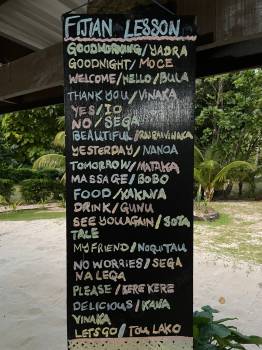 FIJIAN LESSON
GOODMORNING/YADRA
GOODNIGHT/MOCE
WELCOME/HELLO/BULA
THANK YOU/VINAKA
YES/IO
NO/SEGA
BEAUTIFUL/RAIRAIVINAKA
YESTERDAY/NANOA
TOMORROW/MATAKA
MASSAGE/BOBO
FOOD/KAKANA
DRINK/GUNU
SEE YOU AGAIN/SOTA
TALE
MY FRIEND/NOQU ITAU
NO WORRIES/SEGA
NA LEQA
PLEASE/KERE KERE
DELICIOUS/KANA
VINAKA
LETS GO/TOU LAKO